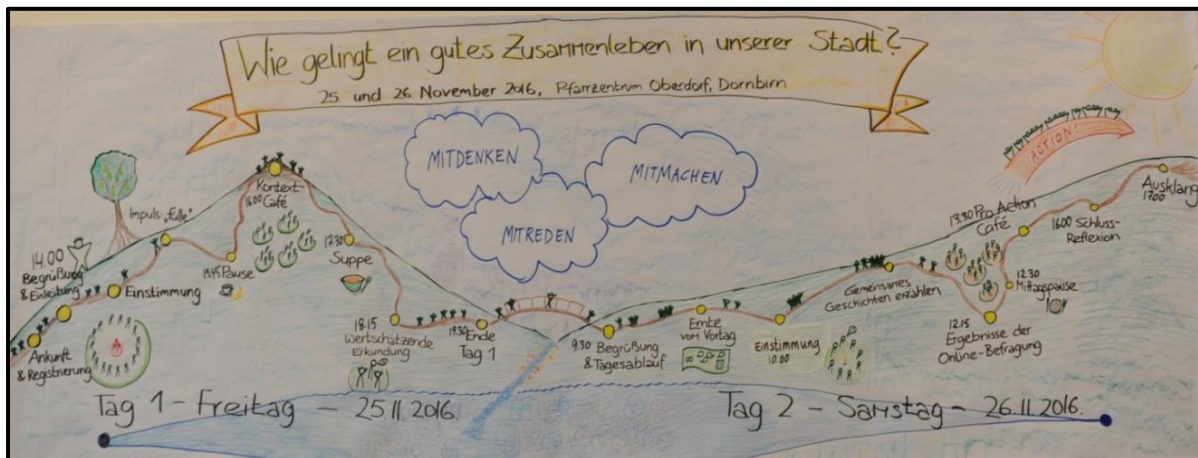 Wie gelingt ein gutes Zusammenleben in unserer Stadt?
25. und 26. November 2016, Pfarrzentrum Oberdorf, Dornbirn
MITDENKEN
MITMACHEN
MITREDEN
ACTION!
Ankunft
& Registrierung
14.00
Begrüßung
& Einleitung
Einstimmung
Impuls „Fülle“
15.45 Pause
Kontext-
16.00 Café
17.30
Suppe
18.15
Wertschätzende
Erkundung
19.30 Ende
Tag 1
9.30 Begrüßung
& Tagesablauf
Ernte
vom Vortag
Einstimmung
10.00
Gemeinsames
Geschichten erzählen
12.15
Ergebnisse der
Online-Befragung
12.30
Mittagspause
13.30 Pro Action
Café
16.00 Schluss-
Reflexion
Ausklang
17.00
Tag 1 – Freitag – 25.11.2016.
Tag 2 – Samstag – 26.11.2016.